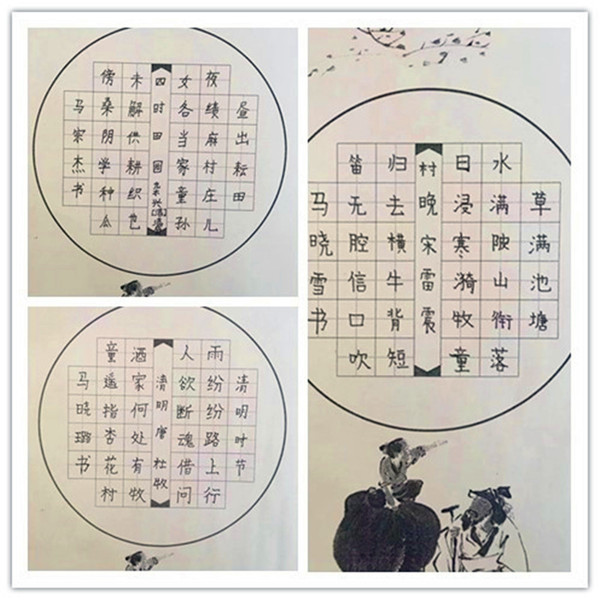 昼出耘田
夜绩麻村庄儿
女各当家童孙
四时田园杂兴
未解供耕织也
傍桑阴学种瓜
马宗杰书
清明时节
雨纷纷路上行
人欲断魂借问
清明唐杜牧
酒家何处有牧
童遥指杏花村
马晓璐书
草满池塘
水满陂山衔落
日浸寒漪牧童
村晚宋雷震
归去横牛背短
笛无腔信口吹
马晓雪书